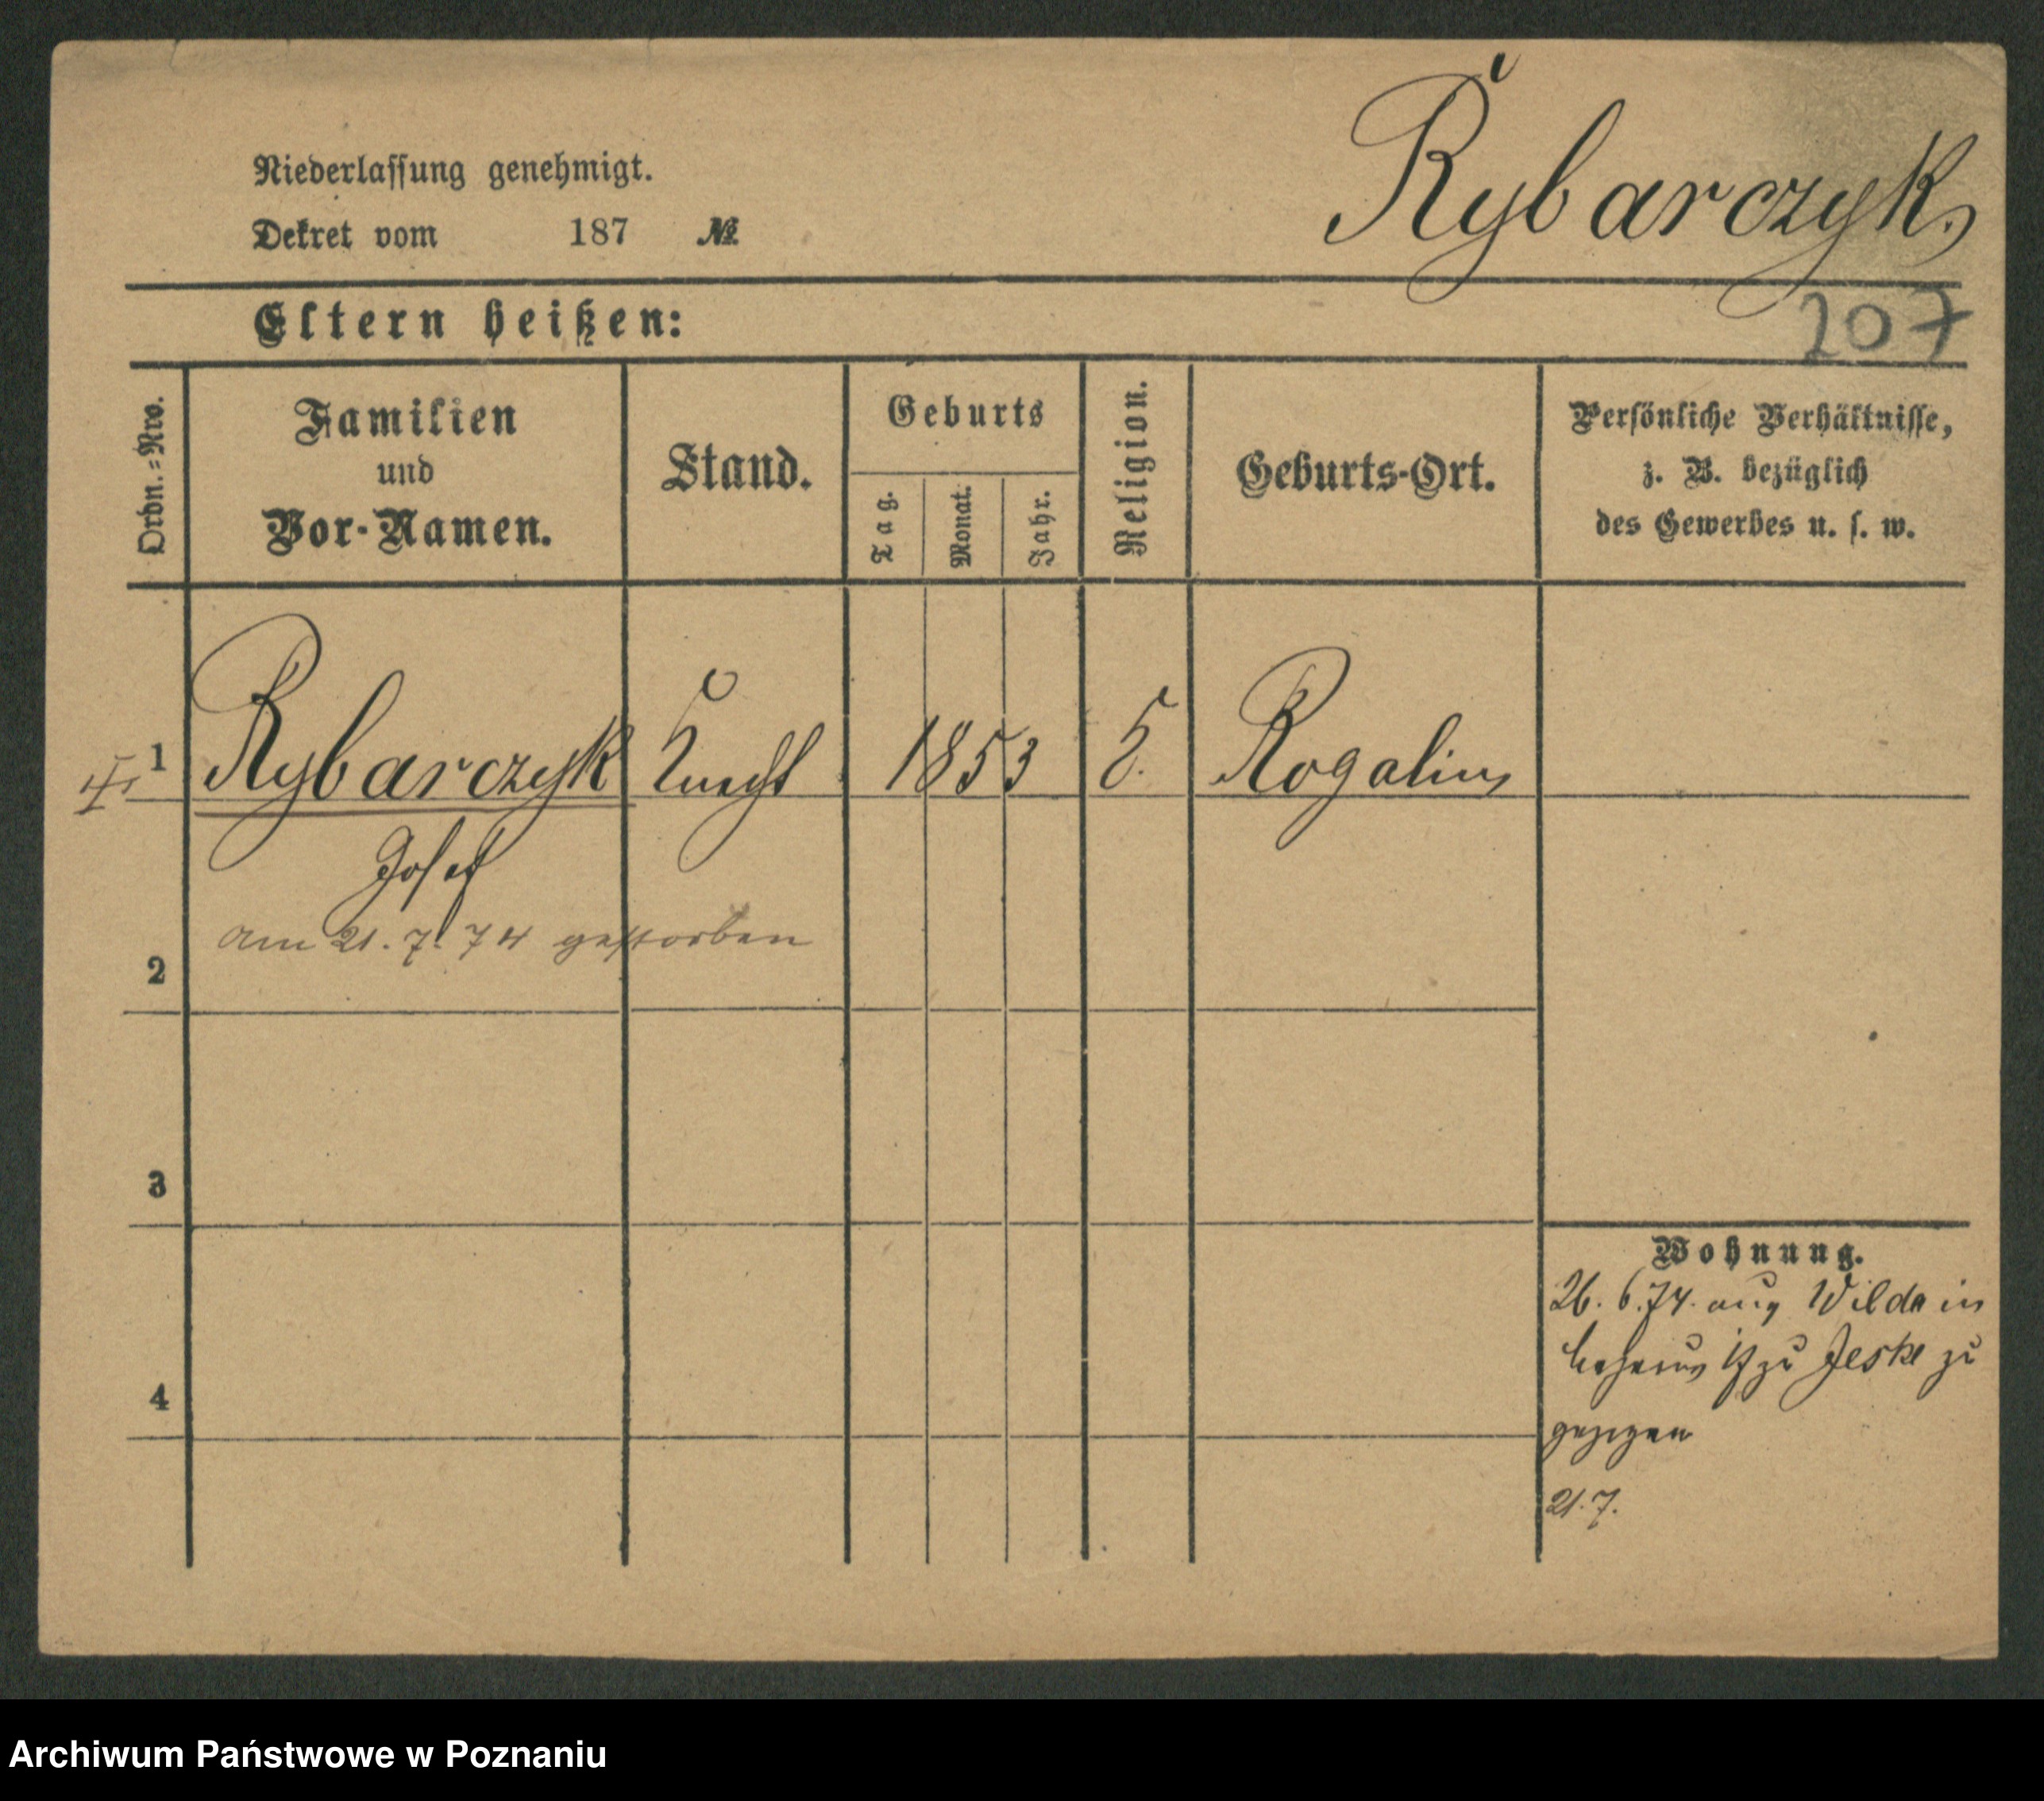 Rybarczyk
Niederlassung genehmigt.
Dekret vom 187 №
Eltern heißen:
207
Ordn.=Nro.
Familien
und
Vor-Namen.
Stand.
Geburts
Tag.
Monat.
Jahr.
Religion.
Geburts-Ort.
Persönliche Verhältnisse,
z. B. bezüglich
des Gewerbes u. s. w.
1 Rybarczyk Knecht 1853 K. Rogalin
Josef
am 21.7.74 gestorben
2
3
4
Wohnung.
26.6.74. aus Wilda in
zu Jeske zu
gezogen
21.7.
Archiwum Państwowe w Poznaniu